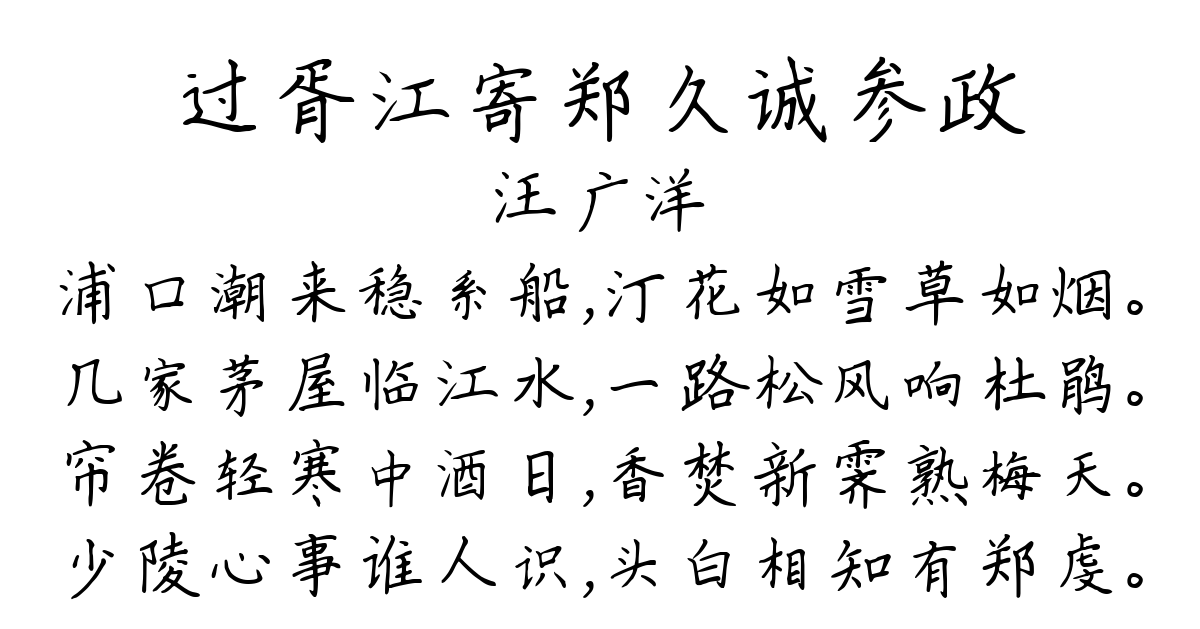 过胥江寄郑久诚参政
汪广洋
浦口潮来稳系船,汀花如雪草如烟。
几家茅屋临江水,一路松风响杜鹃。
帘卷轻寒中酒日,香焚新霁熟梅天。
少陵心事谁人识,头白相知有郑虔。